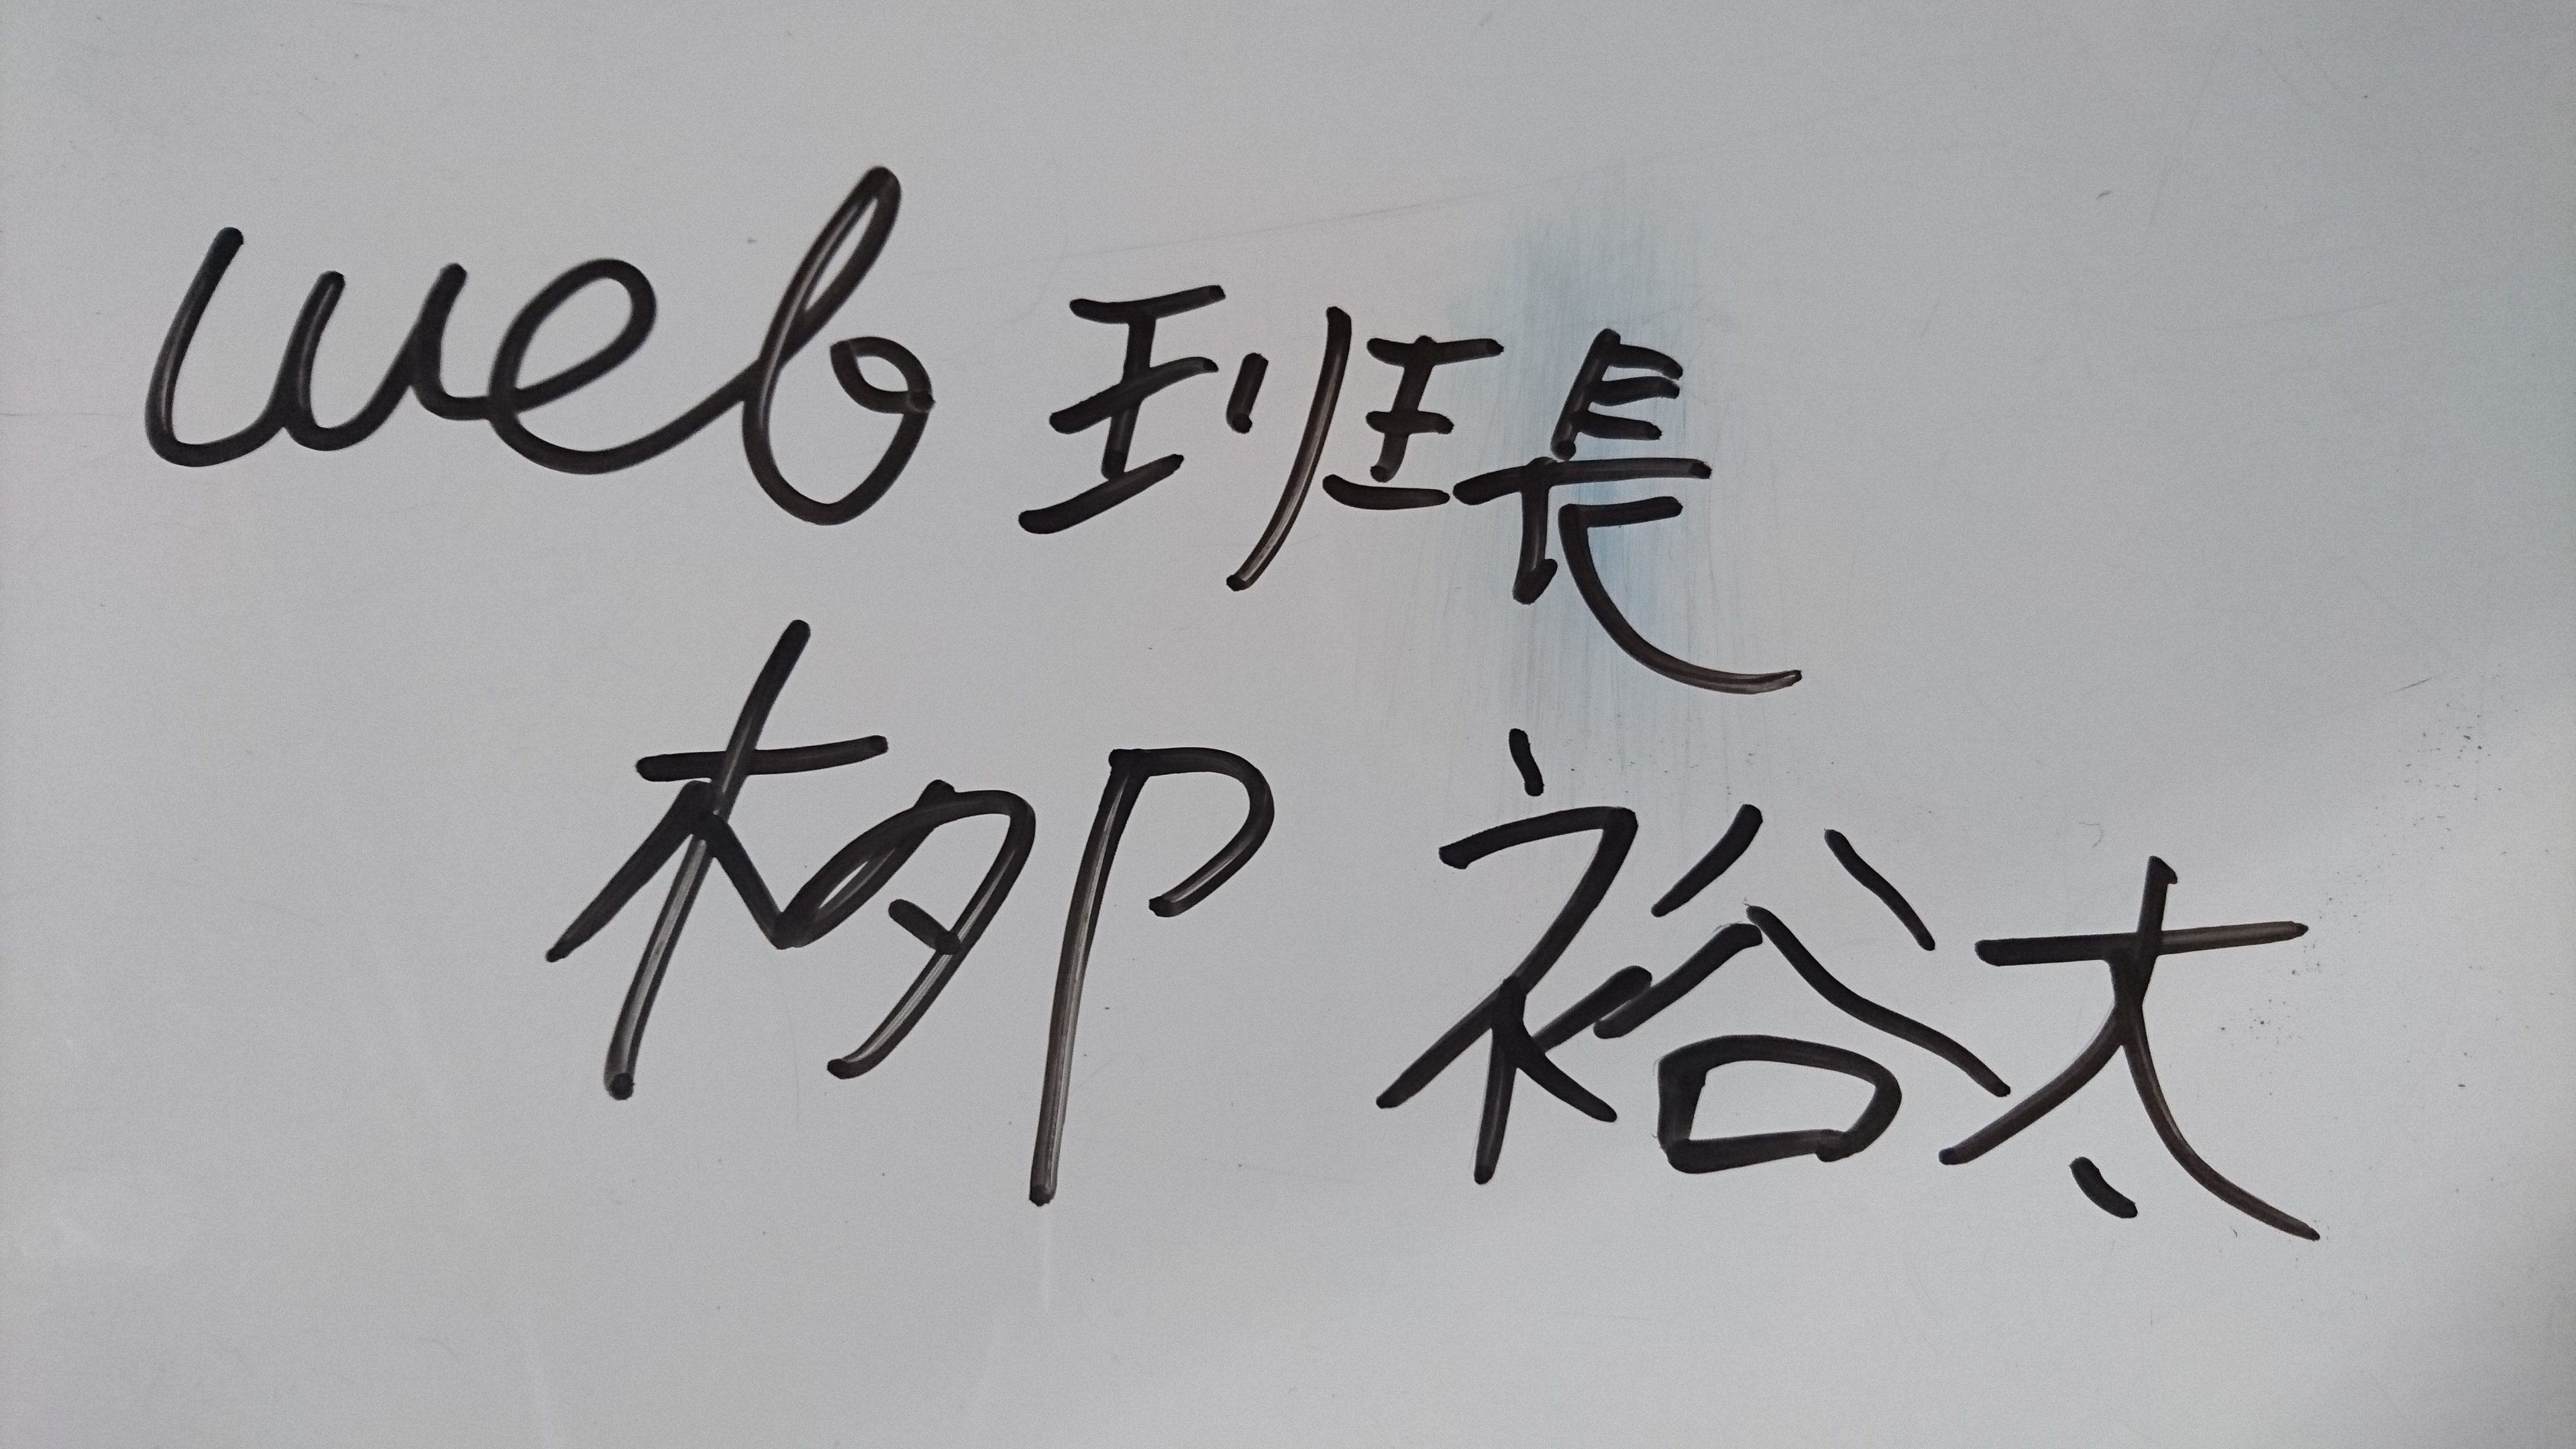 web 班長
柳 裕太